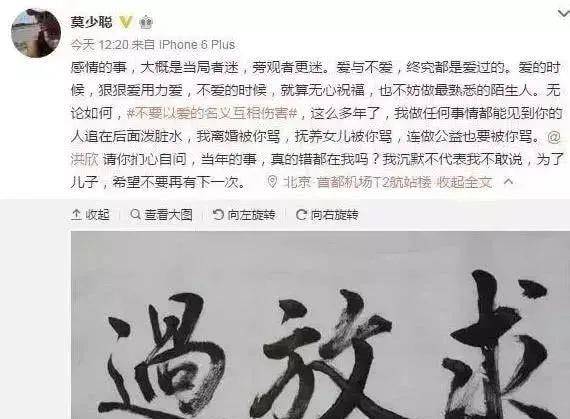 莫少聪
今天 12:20 来自 iPhone 6 Plus
感情的事，大概是当局者迷，旁观者更迷。爱与不爱，终究都是爱过的。爱的时
候，狠狠爱用力爱，不爱的时候，就算无心祝福，也不妨做最熟悉的陌生人。无
论如何，#不要以爱的名义互相伤害#，这么多年了，我做任何事情都能见到你的
人追在后面泼脏水，我离婚被你骂，抚养女儿被你骂，连做公益也要被你骂。@
洪欣 请你扪心自问，当年的事，真的错都在我吗？我沉默不代表我不敢说，为了
儿子，希望不要再有下一次。 北京·首都机场T2航站楼 收起全文
收起 查看大图 向左旋转 向右旋转
過放求